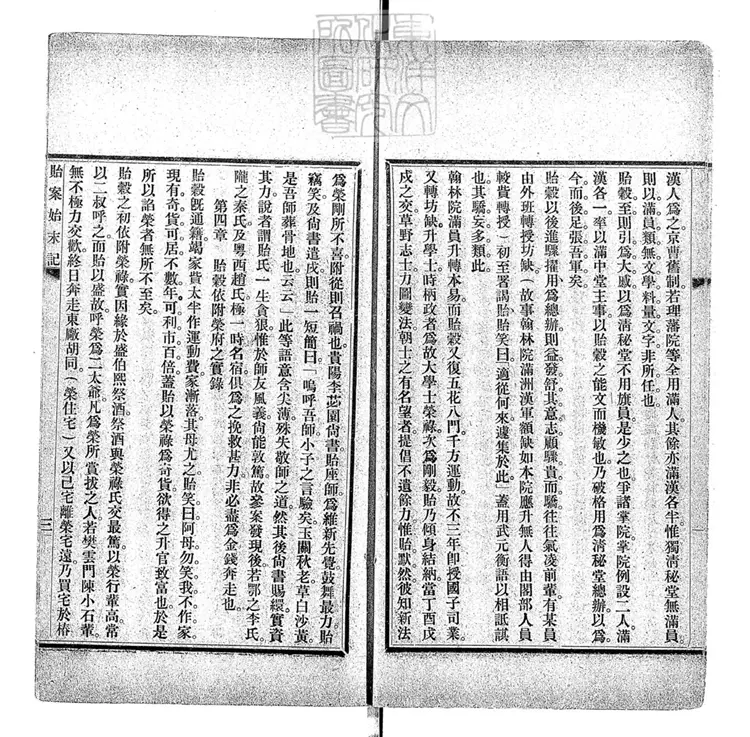 漢人爲之京曹舊制若理藩院等全用滿人其餘亦滿漢各半惟獨淸秘堂無滿員
則以滿員類無文學料量文字非所任也
貽穀至則引爲大慼以爲淸秘堂不用旗員是少之也爭諸掌院掌院例設二人滿
漢各一率以滿中堂主事以貽穀之能文而機敏也乃破格用爲淸秘堂總辦以爲
今而後足張吾軍矣
貽穀以後進驟擢用爲總辦則益發舒其意志顧驟貴而驕往往氣凌前輩有某員
由外班轉授坊缺(故事翰林院滿洲漢軍額缺如本院應升無人得由閣部人員
較貲轉授)初至署謁貽貽笑曰「適從何來遽集於此」蓋用武元衡語以相詆諆
也其驕妄多類此
翰林院滿員升轉本易而貽穀又復五花八門千方運動故不三年即授國子司業
又轉坊缺升學士時柄政者爲故大學士榮祿次爲剛毅貽乃傾身結納當丁酉戊
戌之交草野志士力圖變法朝士之有名望者提倡不遺餘力惟貽默然彼知新法
爲榮剛所不喜附從則召禍也貴陽李苾園尙書貽座師爲維新先覺鼓舞最力貽
竊笑及尙書遣戍則貽一短簡曰「嗚呼吾師小子之言驗矣玉關秋老草白沙黃
是吾師葬骨地也云云」此等語意含尖薄殊失敬師之道然其後尙書賜繯實資
其力說者謂貽氏一生貪狠惟於師友風義尙能敦篤故參案發現後若鄂之李氏
隴之秦氏及粤西趙氏極一時名宿俱爲之挽救甚力非必盡爲金錢奔走也
第四章 貽穀依附榮府之實錄
貽穀旣通籍竭家貲太半作運動費家漸落其母尤之貽笑曰阿母勿笑我不作家
現有奇貨可居不數年可利市百倍蓋貽以榮祿爲奇貨欲得之升官致富也於是
所以諂榮者無所不至矣
貽穀之初依附榮祿實因緣於盛伯熙祭酒祭酒與榮祿氏交最篤以榮行輩高常
以二叔呼之而貽以盛故呼榮爲二太爺凡爲榮所賞拔之人若樊雲門陳小石輩
無不極力交歡終日奔走東廠胡同(榮住宅)又以己宅離榮宅遠乃買宅於椿
貽案始末記
三